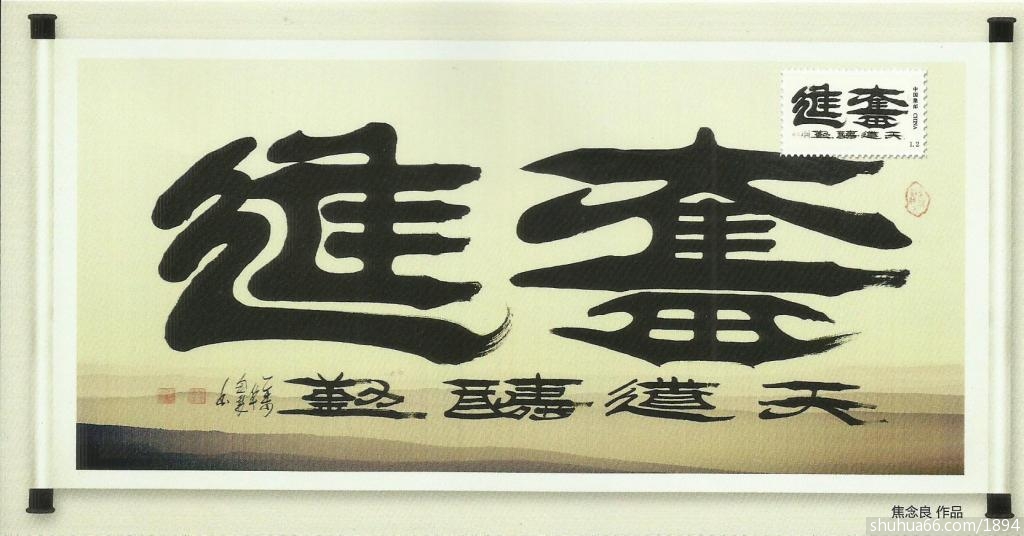 奮進
天道醻勤
奮進
天道醻勤
中国邮政 CHINA
1.2
焦念良 作品
shuhua66.com/1894